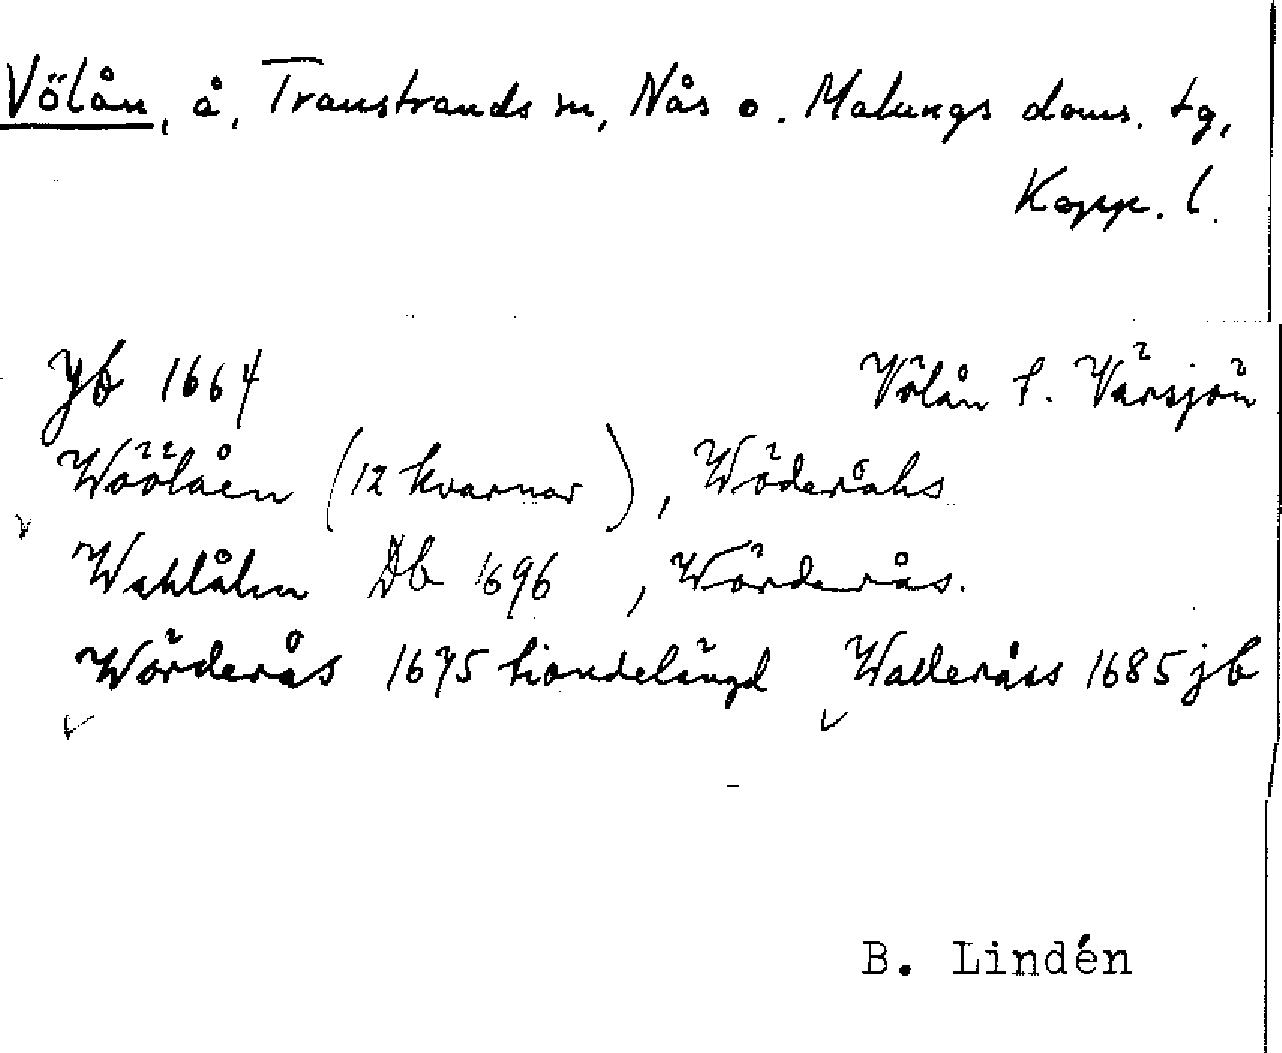 Völån, å, Transtrands sn, Nås o. Malungs doms. tg,
Kopp. l.
Jb 1664 Völån f. Värsjön
Wöölåen (12 kvarnar), Wöderåhs
Wahlåhn Db 1696, Wörderås.
Wörderås 1675 tiondelängd Walleråss 1685 jb
B. Lindén